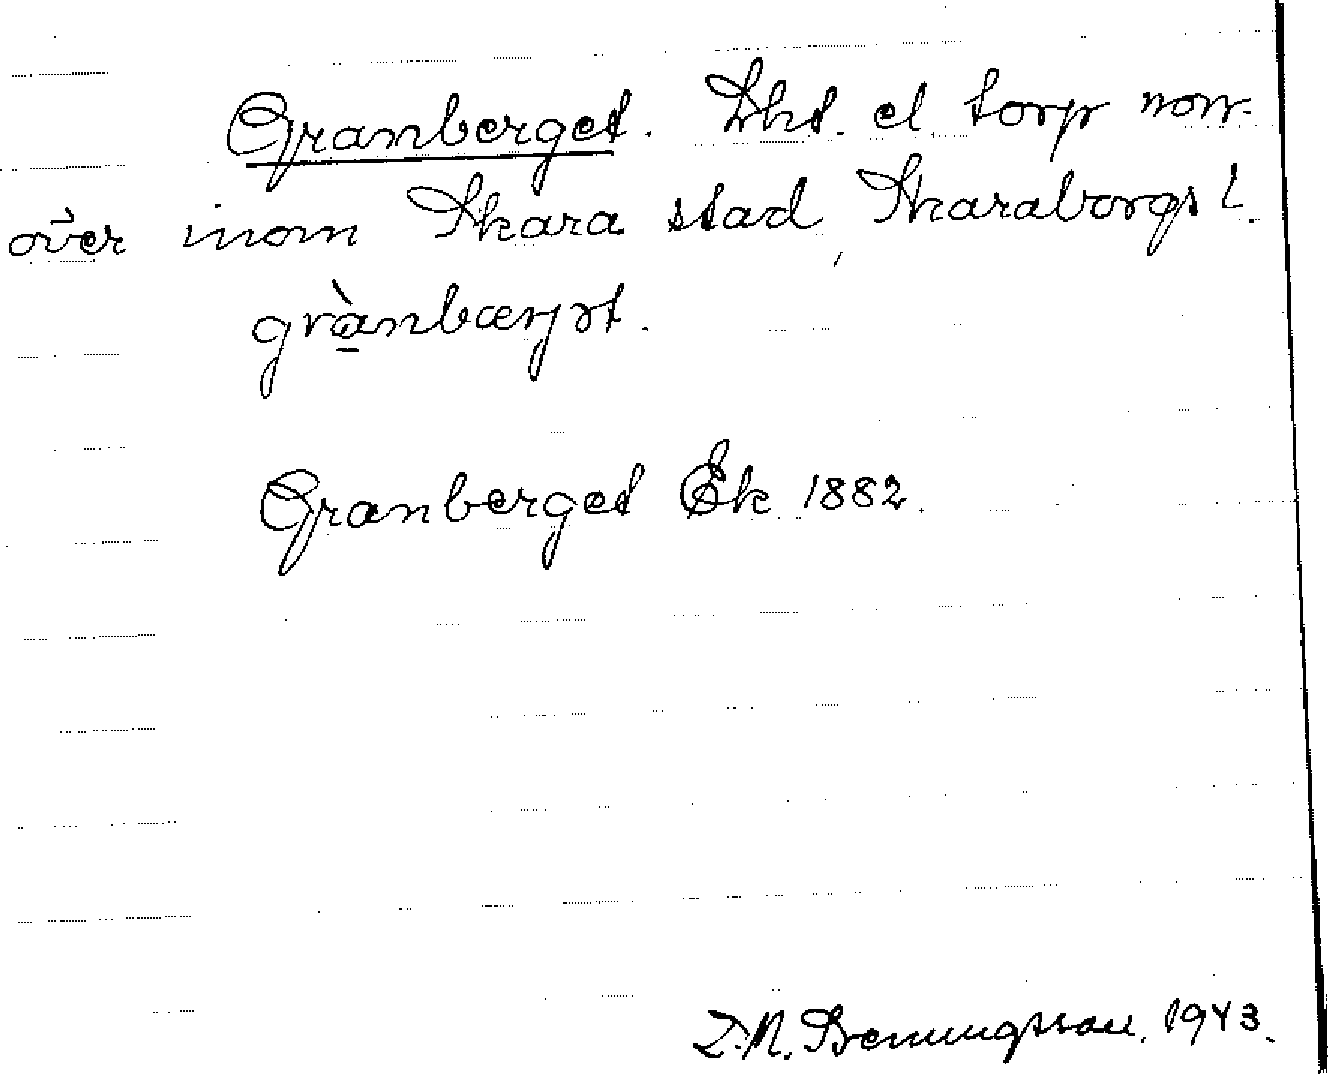 Granberget. Lht. el torp norr-
över inom Skara stad, Skaraborgs l.
grànbærjət.
Granberget Ek 1882.
D.N. Benningsson. 1943.